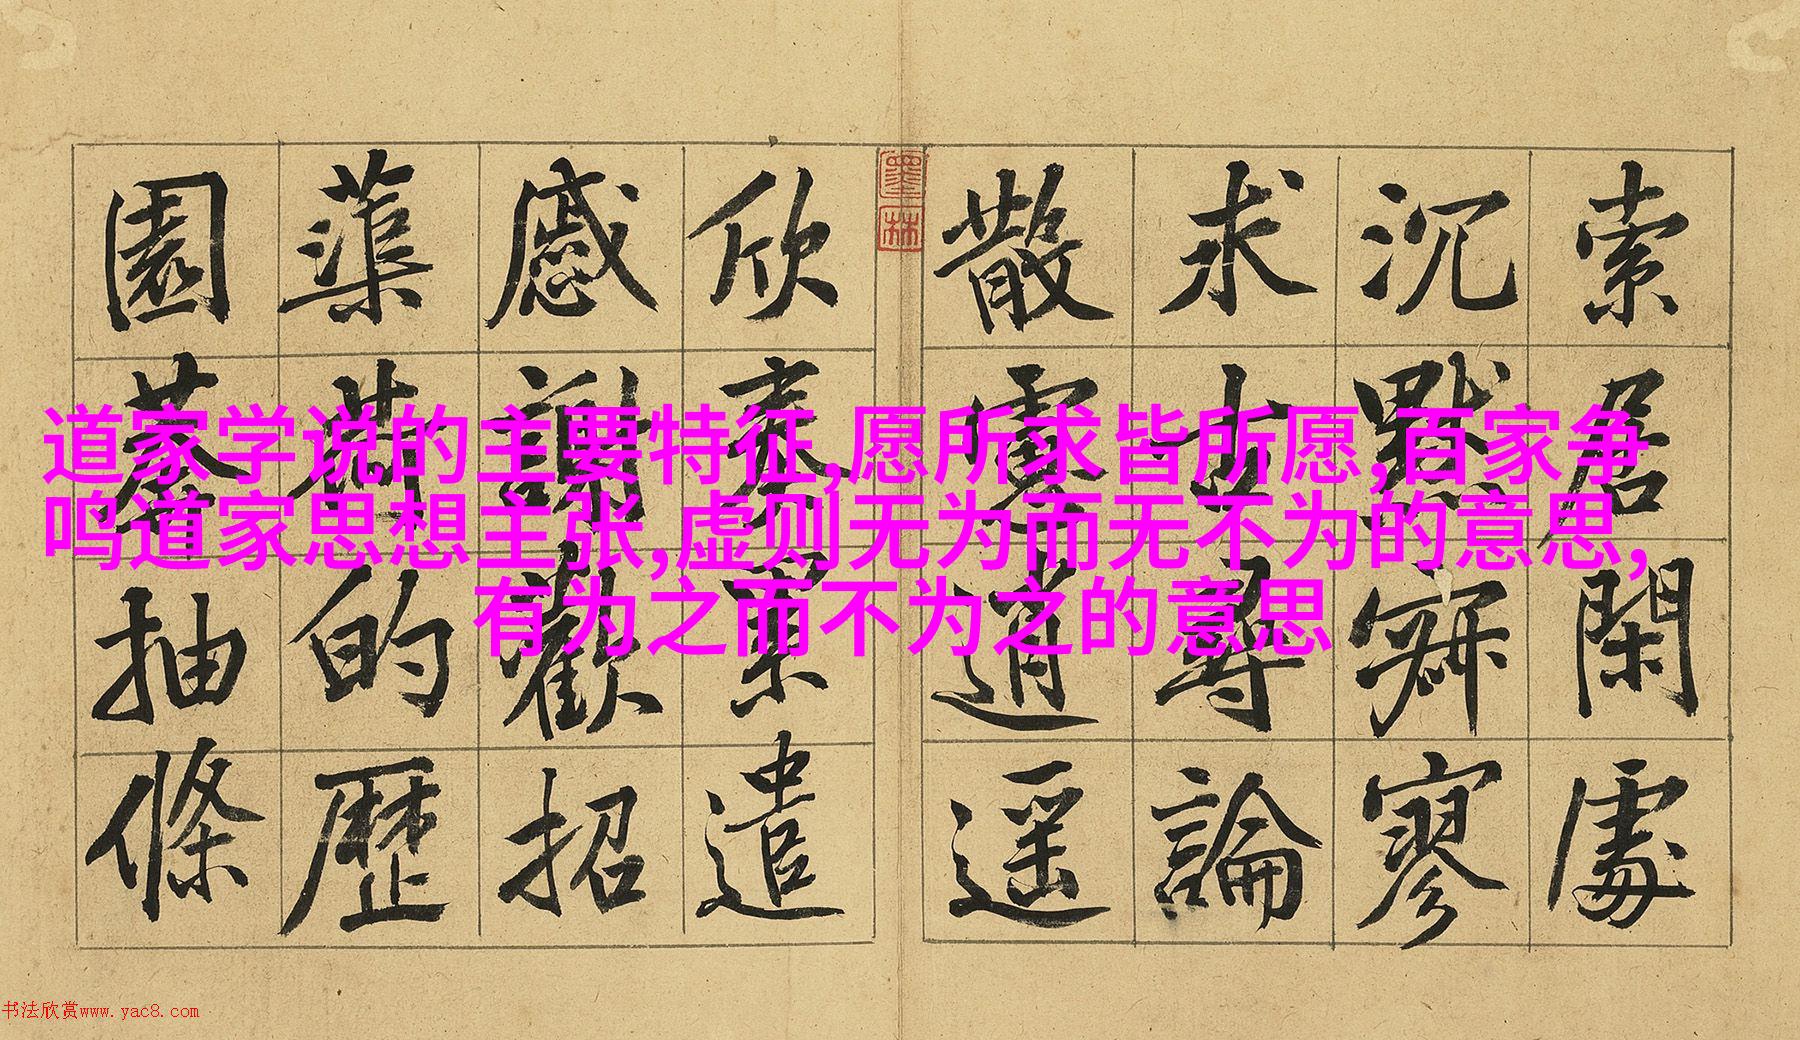 道家学说的主要特征,愿所求皆所愿,百家争
鸣道家思想主张,虚则无为而无不为的意思,
有为之而不为之的意思
索居閑處
沉默寂寥
求古尋論
散慮逍遥
欣奏累遣
慼謝歡招
蕖荷的歷
園莽抽條
墨林
书法欣赏www.yac8.com